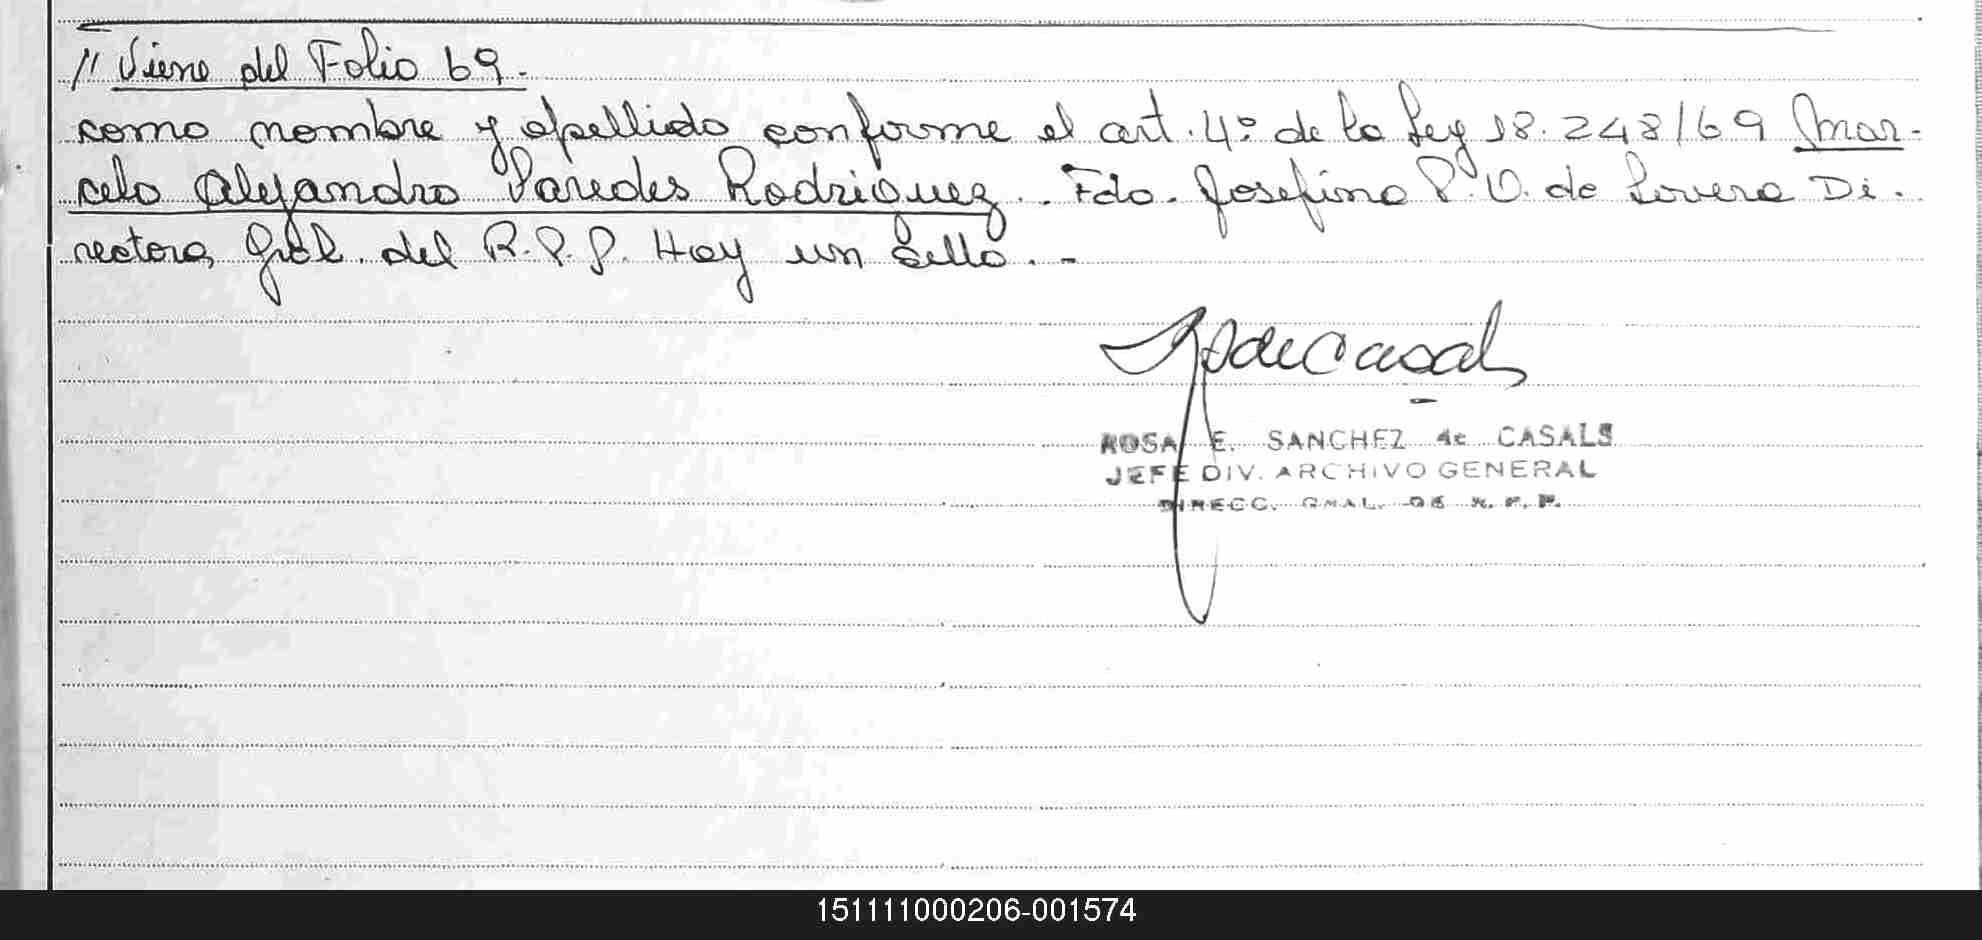 // Viene del Folio 69.
como nombre y apellido conforme el art. 4º de la Ley 18.248/69 Mar-
celo Alejandro Paredes Rodriguez. Fdo. Josefina P.O. de Lovera Di-
rectora Gral. del R.P.P. Hay un sello. -
ROSA E. SANCHEZ de CASALS
JEFE DIV. ARCHIVO GENERAL
DIRECC. GRAL. DE R. P. P.
151111000206-001574